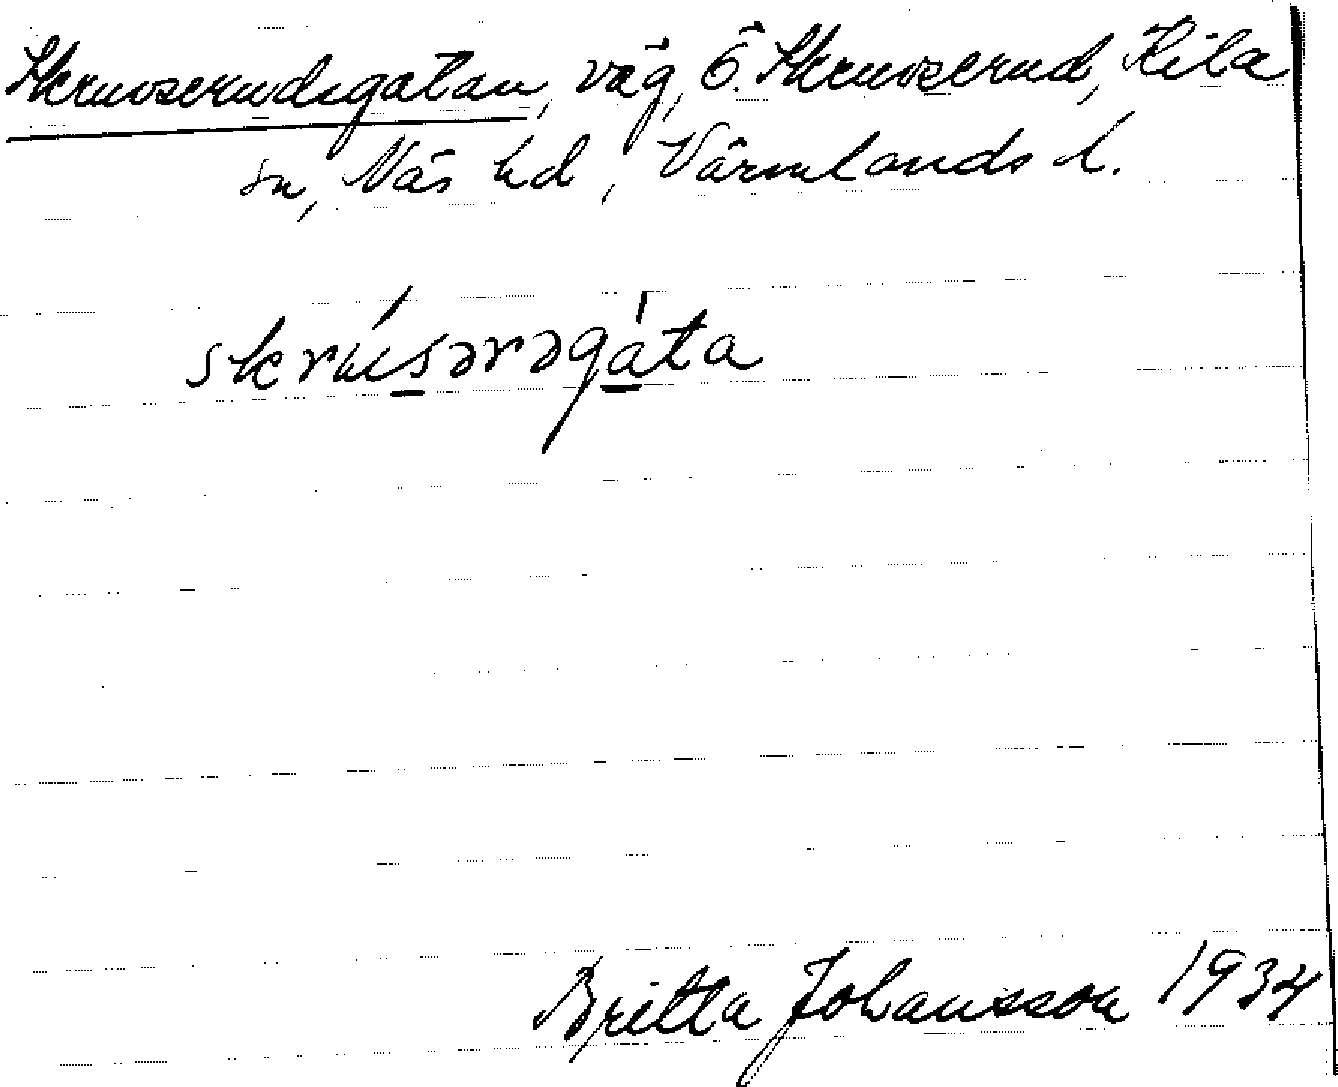 Skruvserudsgatan, väg, Ö. Skruvserud, Kila
sn, Näs hd, Värmlands l.
skrúsərəgáta
Britta Johansson 1934